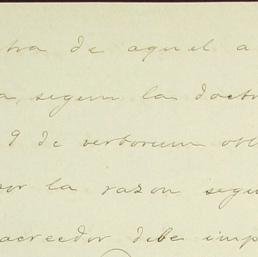 tra de aquel a
a, segun la doctr
9 de verborum obl
por la razon segu
acreedor debe imp